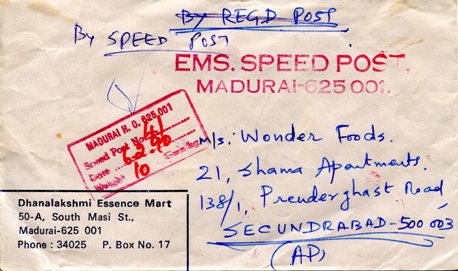 By REGD POST
By SPEED POST
EMS. SPEED POST.
MADURAI-625 001.
MADURAI H. O. 625 001
Speed Post No. 41
Date 6.2.90
10
M/s. Wonder Foods.
21, Shama Apartments.
138/1, Prenderghast Road
SECUNDRABAD-500 003
(AP)
Dhanalakshmi Essence Mart
50-A, South Masi St.,
Madurai-625 001
Phone : 34025 P. Box No. 17